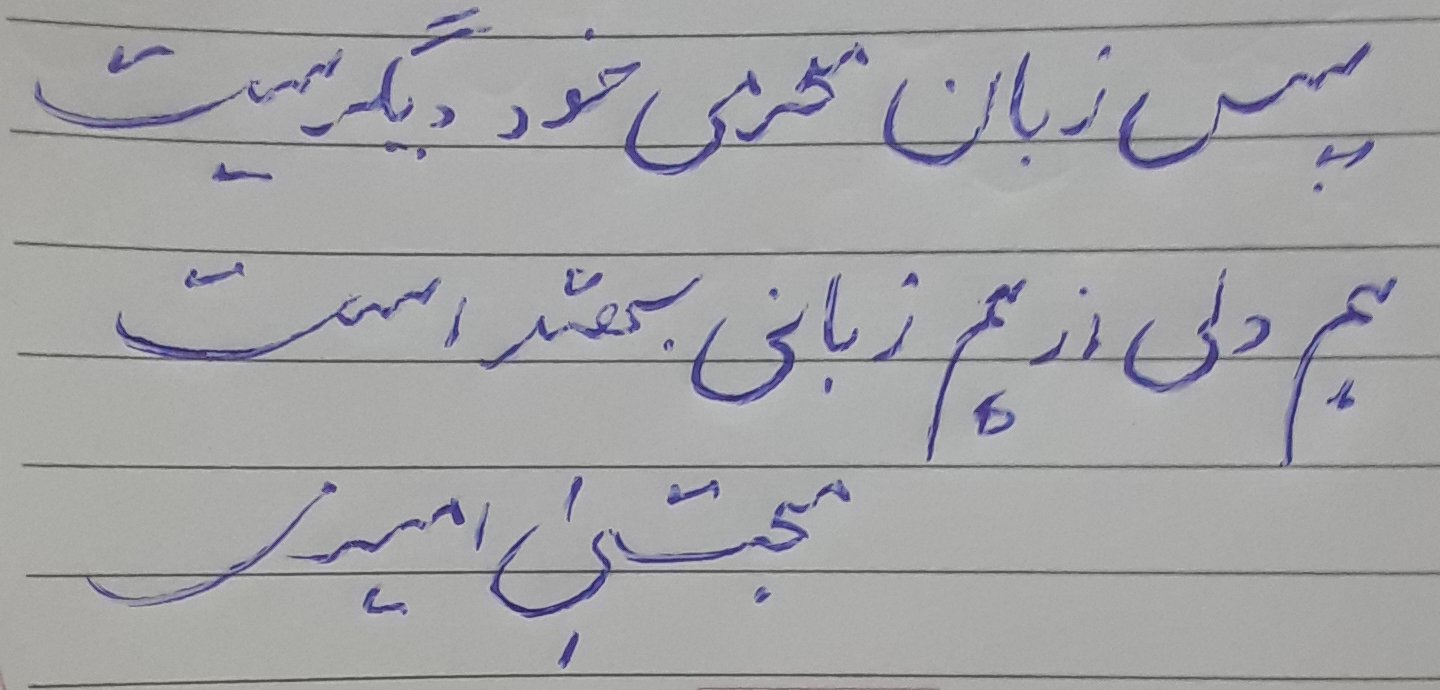 پس زبان محرمی خود دیگریست
هم دلی از هم زبانی بهتر است
مجتبی امیری